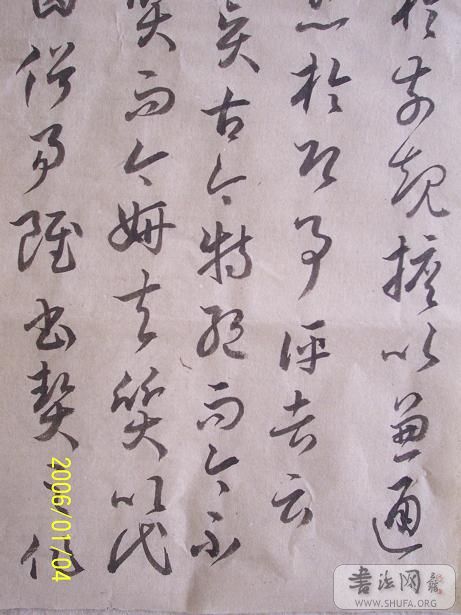 於前規摭以兼通
於即事評者云
賢古今特絕而今不
質而今妍夫質以代
因俗易雖書契之作
2006/01/04
書法网
WWW.SHUFA.ORG